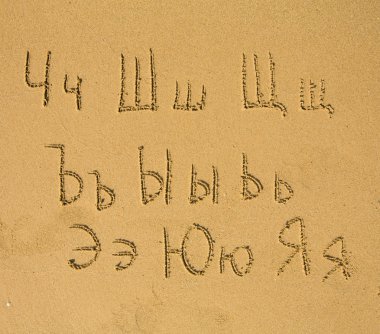 Чч Шш Щщ
Ъъ Ыы Ьь
Ээ Юю Яя